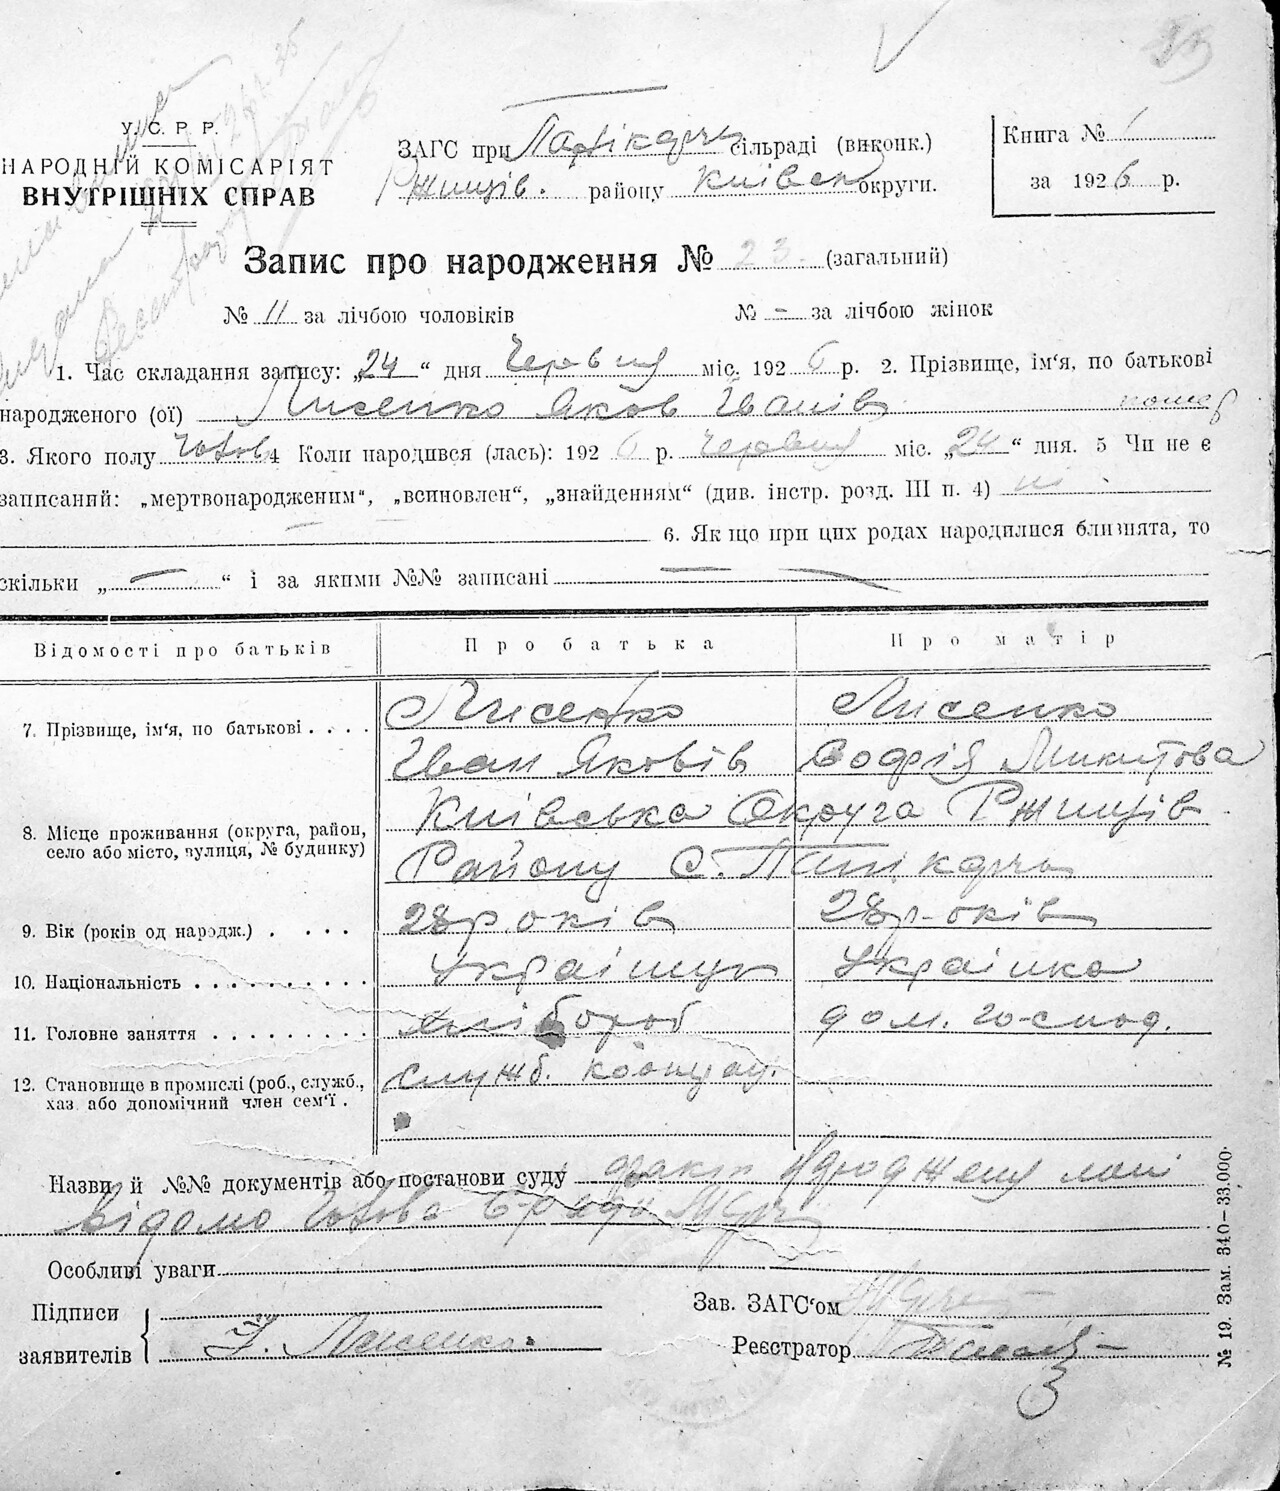 У. С. Р. Р.
НАРОДНІЙ КОМІСАРІЯТ
ВНУТРІШНІХ СПРАВ
ЗАГС при Папікарчи сільраді (виконк.)
Ржищів. району Київськ округи.
Книга № 1
за 1926 р.
Запис про народження № 23. (загальний)
№ 11 за лічбою чоловіків № - за лічбою жінок
1. Час складання запису: „24“ дня Червня міс. 1926 р. 2. Прізвище, ім‘я, по батькові
народженого (ої) Лисенко Яков Іванів
3. Якого полу Чолов 4 Коли народився (лась): 1926 р. Червня міс. „24“ дня. 5 Чи не є
записаний: „мертвонародженим“, „всиновлен“, „знайденням“ (див. інстр. розд. III п. 4) ні
6. Як що при цих родах народилися близнята, то
скільки „—“ і за якими №№ записані —
Відомості про батьків Про батька Про матір
7. Прізвище, ім‘я, по батькові . . . . Лисенко Лисенко
Іван Яковів Софія Микитова
8. Місце проживання (округа, район, село або місто, вулиця, № будинку) Київська Округа Ржищів
Району С. Папікарчи
9. Вік (років од народж.) . . . . 28 років 28 років
10. Національність . . . . . . . . . . Українцук Українка
11. Головне заняття . . . . . . . . хлібороб дом. господ.
12. Становище в промислі (роб., служб., хаз або допомічний член сем‘ї . служб.
Назви й №№ документів або постанови суду факт народження мені
відомо Голова
Особливі уваги
Підписи
заявителів І. Лисенко
Зав. ЗАГС‘ом
Реєстратор
№ 19. Зам. 340—33.000.